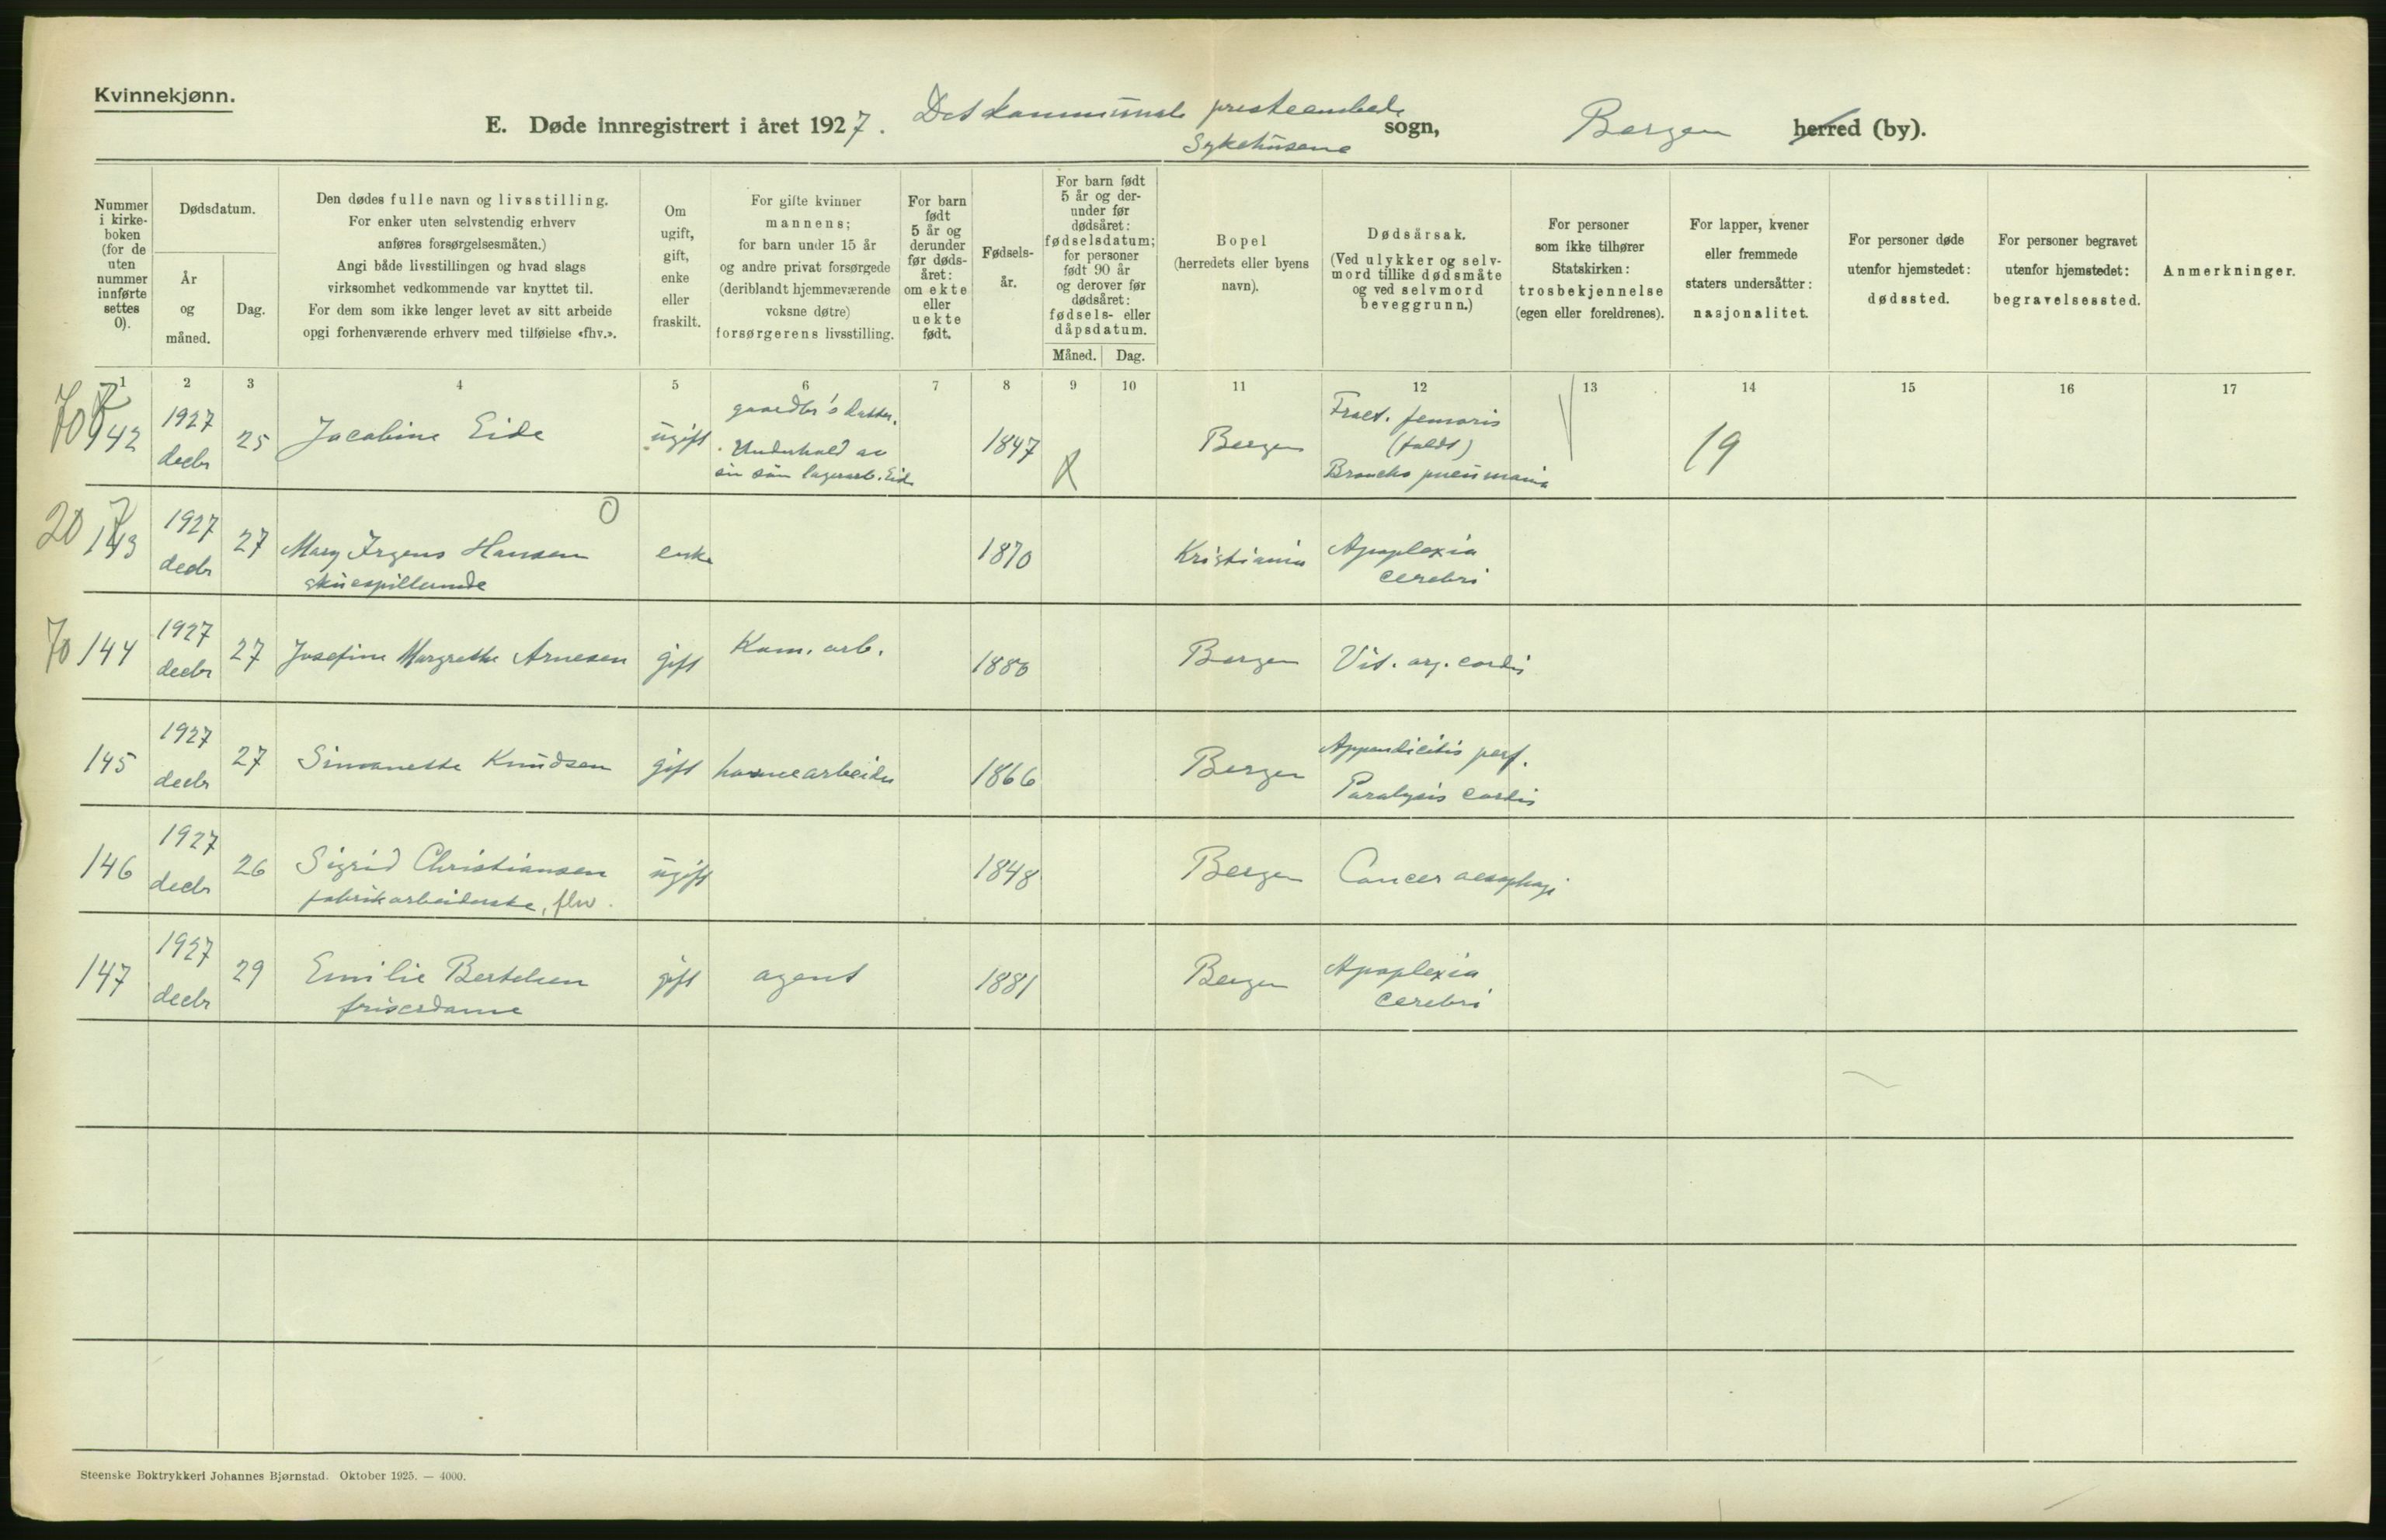 Kvinnekjønn.
E. Døde innregistrert i året 1927. Det kommunale presteembede
Sykehusene
sogn, Bergen herred (by).
Nummer i kirke-boken (for de uten nummer innførte settes 0).
Dødsdatum.
År og måned.
Dag.
Den dødes fulle navn og livsstilling.
For enker uten selvstendig erhverv
anføres forsørgelsesmåten.)
Angi både livsstillingen og hvad slags
virksomhet vedkommende var knyttet til.
For dem som ikke lenger levet av sitt arbeide
opgi forhenværende erhverv med tilføielse «fhv.».
Om ugift, gift, enke eller fraskilt.
For gifte kvinner
mannens;
for barn under 15 år
og andre privat forsørgede
(deriblandt hjemmeværende
voksne døtre)
forsørgerens livsstilling.
For barn født 5 år og derunder før døds-året: om ekte eller uekte født.
Fødsels-år.
For barn født 5 år og der-under før dødsåret: fødselsdatum; for personer født 90 år og derover før dødsåret: fødsels- eller dåpsdatum.
Måned. Dag.
Bopel
(herredets eller byens
navn).
Dødsårsak.
(Ved ulykker og selv-
mord tillike dødsmåte
og ved selvmord
beveggrunn.)
For personer
som ikke tilhører
Statskirken:
trosbekjennelse
(egen eller foreldrenes).
For lapper, kvener
eller fremmede
staters undersåtter:
nasjonalitet.
For personer døde
utenfor hjemstedet:
dødssted.
For personer begravet
utenfor hjemstedet:
begravelsessted.
Anmerkninger.
1 2 3 4 5 6 7 8 9 10 11 12 13 14 15 16 17
70 142 1927 decbr 25 Jacobine Eide ugift gaardbr's datter.
Underhold av
sin sön lagerarb. Eide
1847 Bergen Fract. femoris
(faldt)
Broncho pneumonia
19
20 143 1927 decbr 27 Mary Irgens Hansen
skuespillerinde
enke 1870 Kristiania Apoplexia
cerebri
70 144 1927 decbr 27 Josefine Margrethe Arnesen gift Kom. arb. 1880 Bergen Vit. org. cordis
145 1927 decbr 27 Simonette Knudsen gift havnearbeider 1866 Bergen Appendicitis perf.
Paralysis cordis
146 1927 decbr 26 Sigrid Christiansen
fabrikarbeiderske, fhv.
ugift 1848 Bergen Cancer aesophagi
147 1927 decbr 29 Emilie Bertelsen
friserdame
gift agent 1881 Bergen Apoplexia
cerebri
Steenske Boktrykkeri Johannes Bjørnstad. Oktober 1925. — 4000.